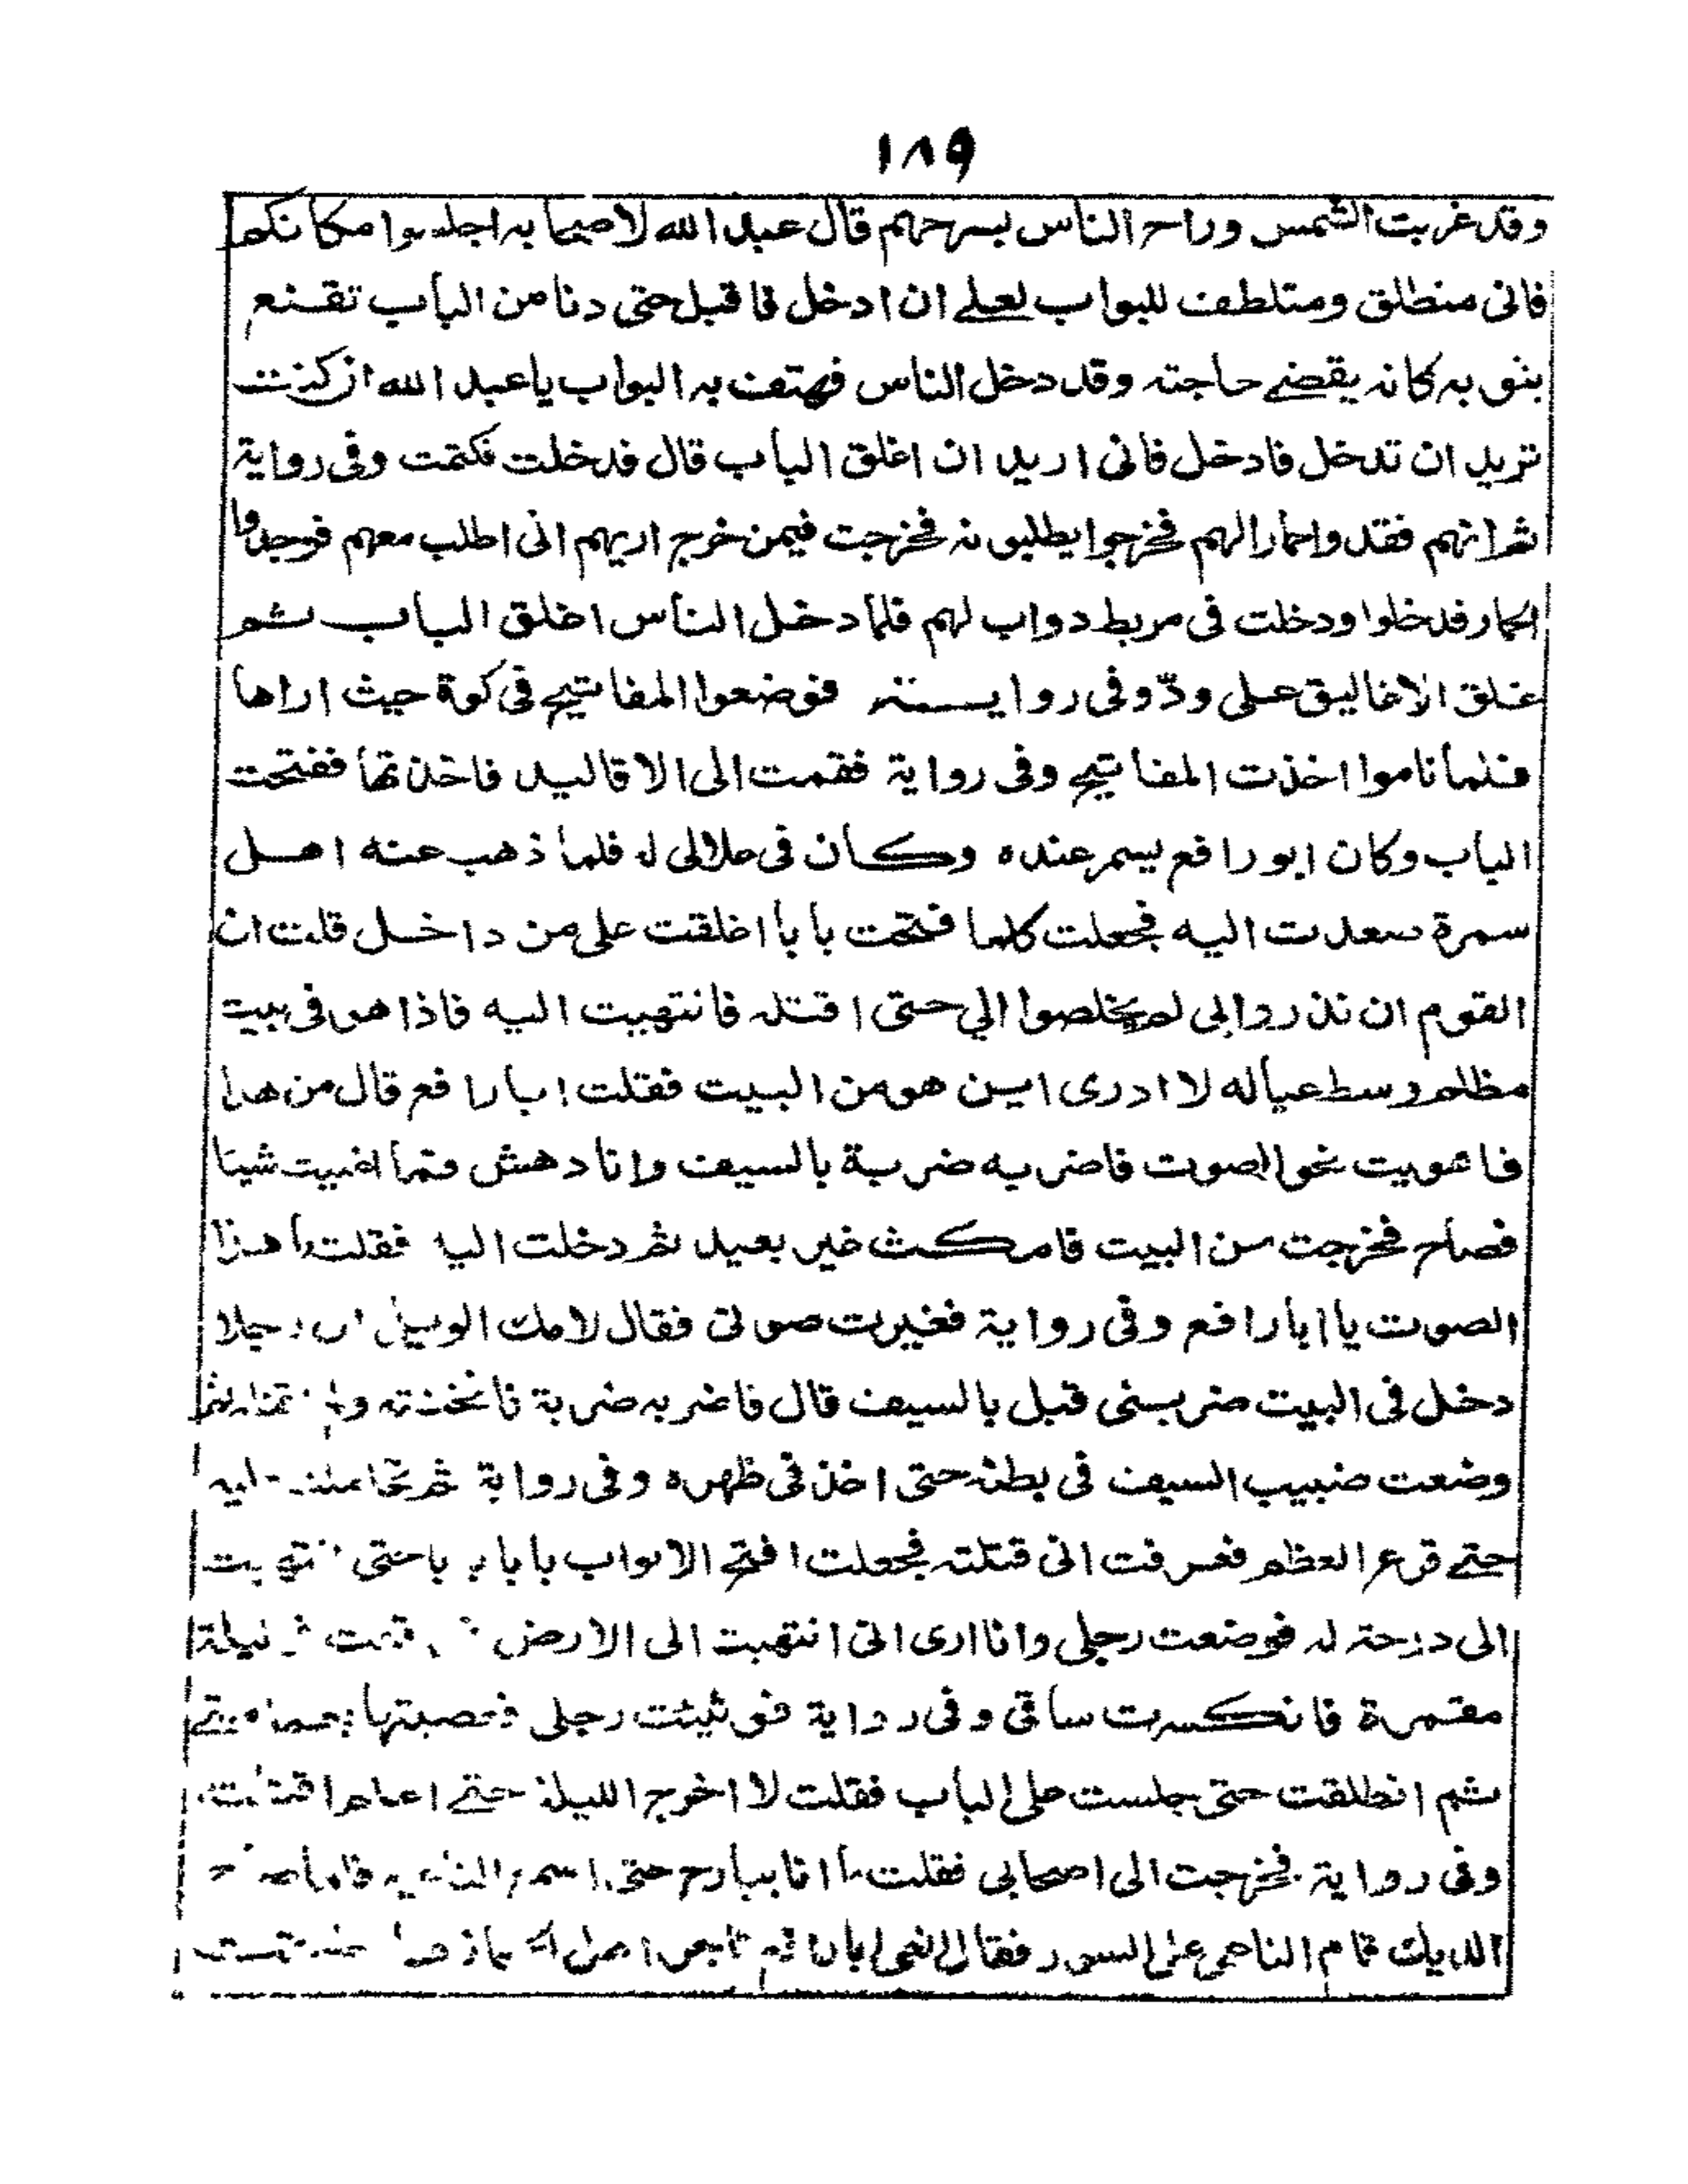 ١٨٩
وقد غربت الشمس وراح الناس بسرحهم قال عبد الله لاصحابه اجلسوا مكانكم
فانى منطلق ومتلطف للبواب لعلے ان ادخل فاقبل حتى دنا من الباب تقنع
بثوبه كانه يقضے حاجته وقد دخل الناس فهتف به البواب يا عبد الله ان كنت
تريد ان تدخل فادخل فانى اريد ان اغلق الباب قال فدخلت فكتمت وفى رواية
ثم انهم فقدوا حمارا لهم فخرجوا يطلبونه فخرجت فيمن خرج اريهم انى اطلب معهم فوجدوا
الحمار فدخلوا ودخلت فى مربط دواب لهم فلما دخل الناس اغلق الباب ثم
غلق الاغاليق على ودّ وفى رواية فوضعوا المفاتيح فى كوة حيث اراها
فلما ناموا اخذت المفاتيح وفى رواية فقمت الى الاقاليد فاخذتها ففتحت
الباب وكان ابو رافع يسمر عنده وكان فى علالى له فلما ذهب عنه اهل
سمرة صعدت اليه فجعلت كلما فتحت بابا اغلقت على من داخل قلت ان
القوم ان نذروا بى لم يخلصوا الي حتى اقتله فانتهيت اليه فاذا هو فى بيت
مظلم وسط عياله لا ادرى اين هو من البيت فقلت ابا رافع قال من هذا
فاهويت نحو الصوت فاضربه ضربة بالسيف وانا دهش فما اغنيت شيئا
فصاح فخرجت من البيت فامكث غير بعيد ثم دخلت اليه فقلت ما هذا
الصوت يا ابا رافع وفى رواية فغيرت صوتى فقال لامك الويل ان رجلا
دخل فى البيت ضربنى قبل بالسيف قال فاضربه ضربة فاثخنته ولم اقتله ثم
وضعت ضبيب السيف فى بطنه حتى اخذ فى ظهره وفى رواية ثم تحاملت عليه
حتے قرع العظم فعرفت انى قتلته فجعلت افتح الابواب بابا بابا حتى انتهيت
الى درجة له فوضعت رجلى وانا ارى انى انتهيت الى الارض فوقعت فى ليلة
مقمرة فانكسرت ساقى وفى رواية فوثيئت رجلى فعصبتها بعمامتے
ثم انطلقت حتى جلست على الباب فقلت لا اخرج الليلة حتے اعلم اقتلته
وفى رواية فخرجت الى اصحابى فقلت ما انا ببارح حتى اسمع الناعية فلما صاح
الديك قام الناعى على السور فقال انعى ابا رافع تاجر اهل الحجاز